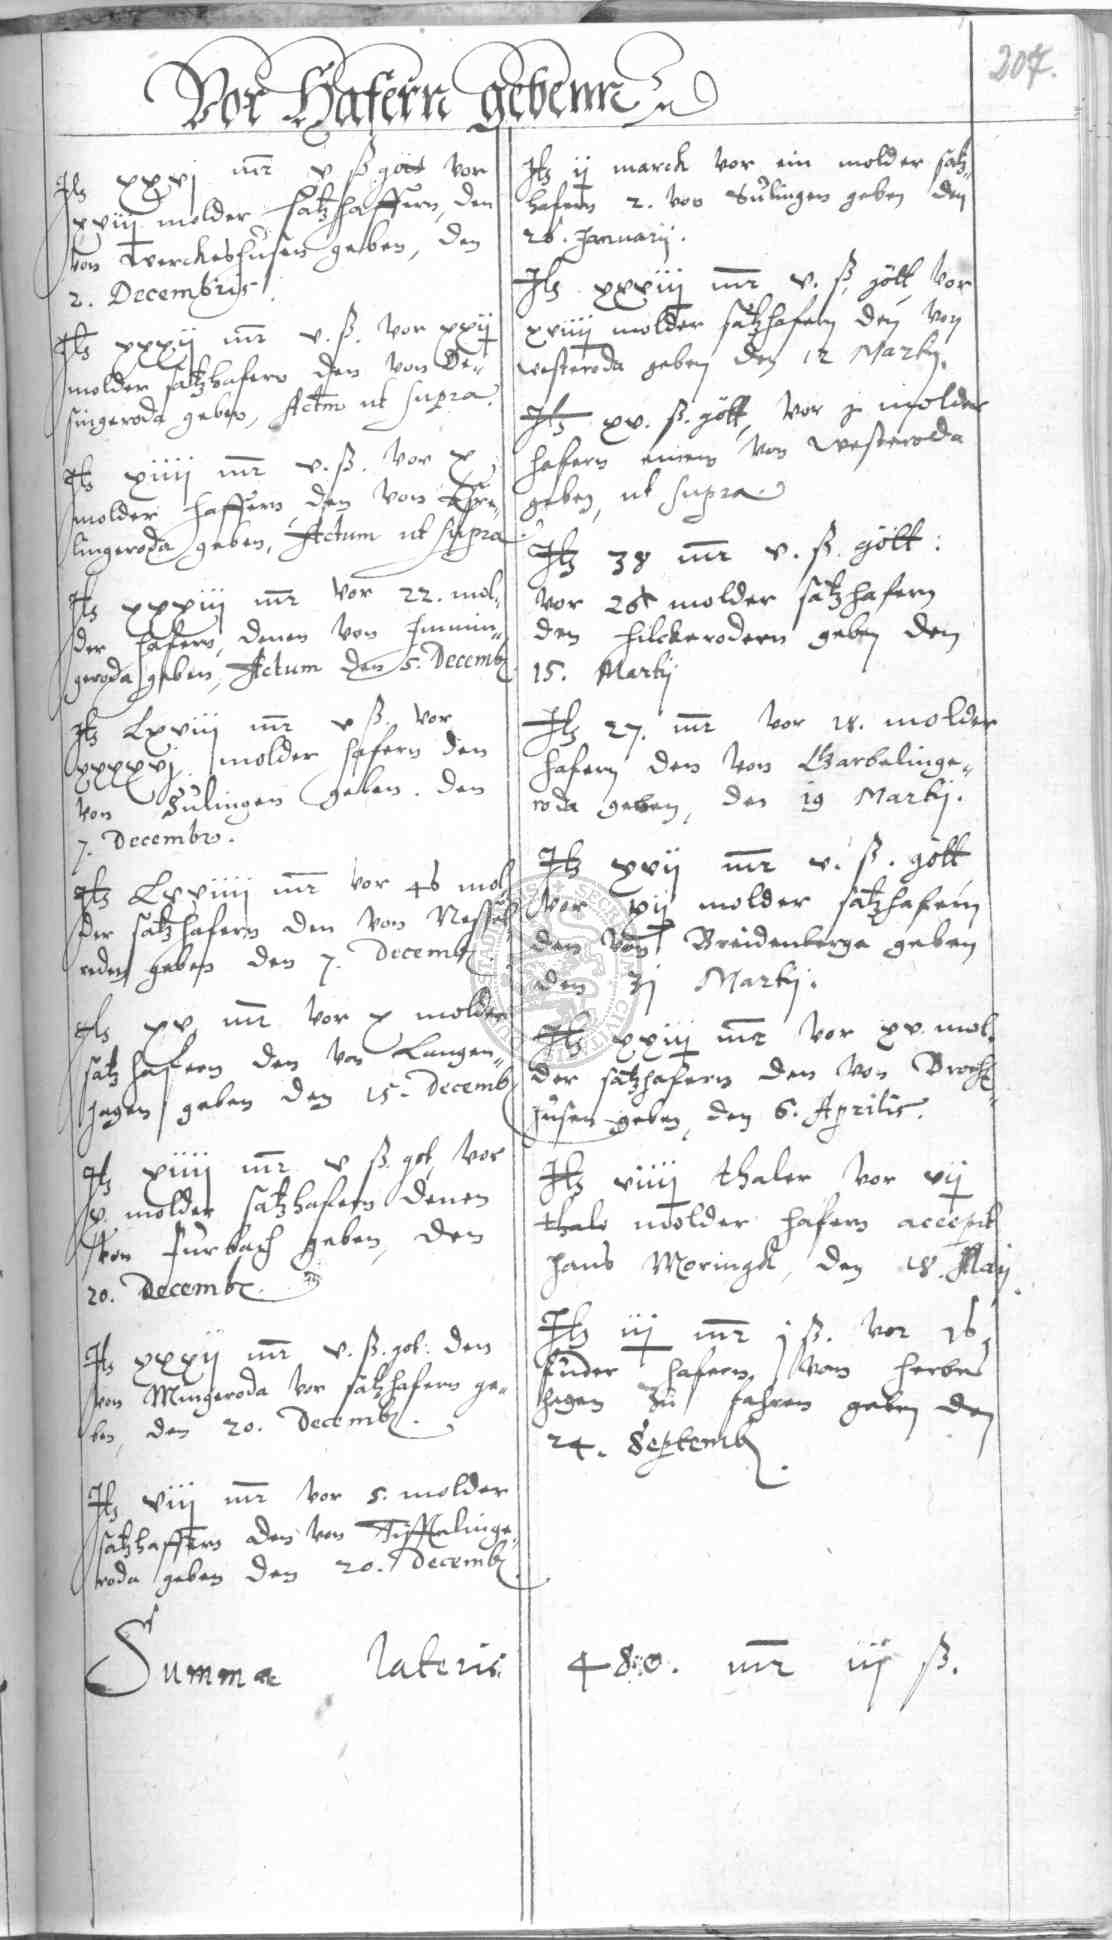 207.
Vor Hafern gebenn
Itz xxvj mr v ß gött vor
xviij molder satzhaffern, den
von Werckeshusen geben, den
2. Decembris.
Itz xxxij mr v. ß. vor xxij
molder satzhafern den von De-
singeroda geben, Actm ut supra.
Itz xiiij mr v. ß. vor x
molder haffern den von
lingeroda geben, Actum ut supra.
Itz xxxiij mr vor 22. mol-
der hafern, denen von Immin-
geroda geben, Actum den 5. Decemb
Itz Lxviij mr v ß. vor
xxxxvj. molder hafern den
von Sulingen geben. den
7. Decembr.
Itz Lxviiij mr vor 46 mol-
der satzhafern den von Nessel-
reden geben den 7. Decemb.
Itz xv mr vor x molder
satzhafern den von Langen-
hagen geben den 15. Decemb
Itz xiiij mr v ß. got, vor
x molder satzhafern denen
von Furbach geben, den
20. Decemb.
Itz xxxij mr v. ß. got: den
von Mingeroda vor satzhafern ge-
ben, den 20. Decemb.
Itz viij mr vor 5. molder
satzhaffern den von Tifftlinge-
roda geben den 20. Decemb
Itz ij marck vor ein molder satz-
hafern 2. von Sulingen geben den
26. Januarij.
Itz xxxiij mr v. ß. gött, vor
xviiij molder satzhafern den von
Westeroda geben den 12 Martij.
Itz xv. ß. gött, vor j molder
hafern einem von Westeroda
geben, ut supra.
Itz 38 mr v. ß. gött:
vor 26 molder satzhafern
den Hilckerodern geben den
15. Martij
Itz 27. mr vor 18. molder
hafern den von Garbelinge-
roda geben, den 19 Martij.
Itz xvij mr v. ß. gött
vor xij molder satzhafern
den von Breidenberge geben
den 31 Martij.
Itz xxiij mr vor xv. mol-
der satzhafern den von Broch-
husen geben, den 6. Aprilis.
Itz viiij thaler vor vij
thalr molder hafern accepit
Hans Moringk, den 18. Maij.
Itz iij mr j ß. vor 16
fuder hafern von Herbi-
hagen zu fahren geben den
24. Septemb.
Summa lateris 480. mr iij ß.